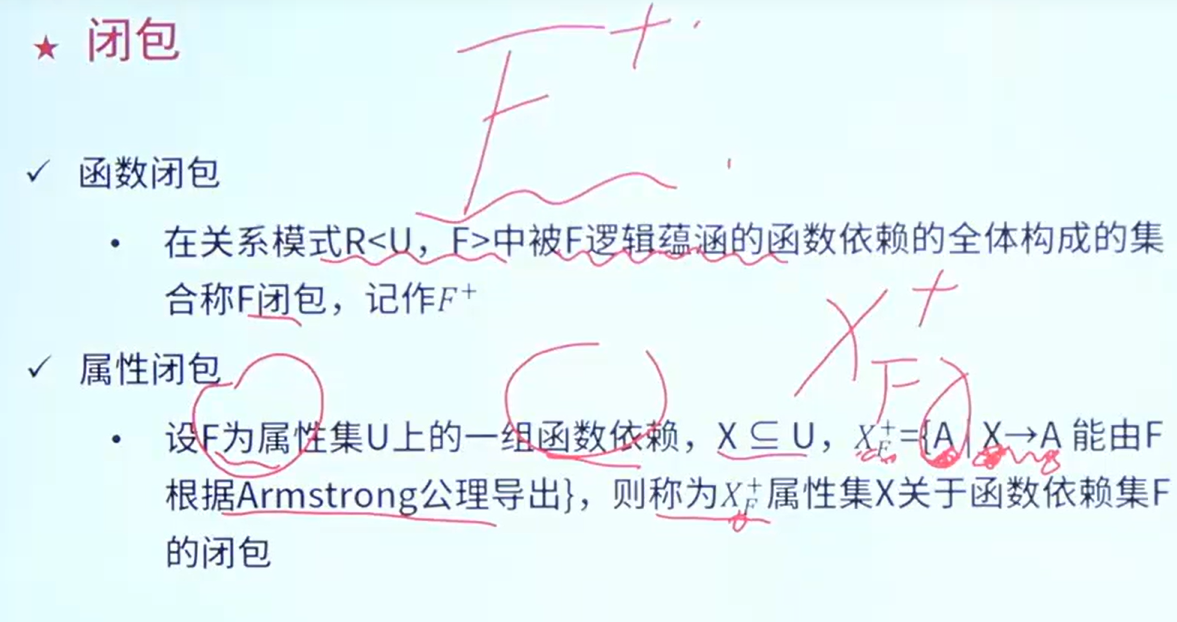 ★ 闭包
F+
✓ 函数闭包
• 在关系模式R<U，F>中被F逻辑蕴涵的函数依赖的全体构成的集
合称F闭包，记作F⁺
X+
F
✓ 属性闭包
• 设F为属性集U上的一组函数依赖，X ⊆ U，X_F^+={A | X→A 能由F
根据Armstrong公理导出}，则称为X_F^+属性集X关于函数依赖集F
的闭包